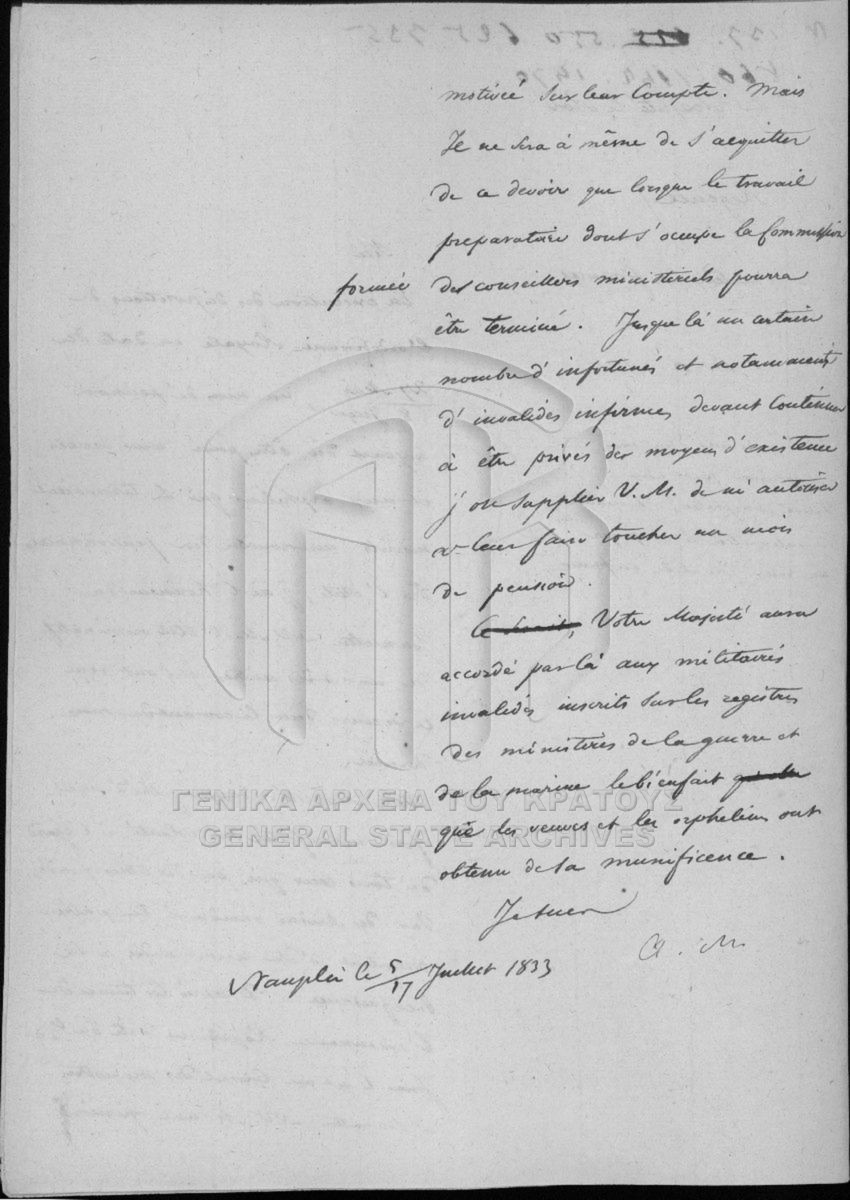 motivé sur leur Compte. Mais
Je ne sera à même de s'acquitter
de ce devoir que lorsque le travail
preparatoire dont s'occupe la Commission
formée
des conseillers ministeriels pourra
être terminé. Jusque là un certain
nombre d'infortunés et notamment
d'invalides infirmes devant Continuer
à être privés des moyens d'existence
j'ose supplier V. M. de m'autoriser
à leur faire toucher un mois
de pension.
Votre Majesté aura
accordé par là aux militaires
invalides inscrits sur les registres
des ministères de la guerre et
de la marine le bienfait
que les veuves et les orphelins ont
obtenu de sa munificence.
Je suis
A. M.
Nauplie le 5/17 Juillet 1833
ΓΕΝΙΚΑ ΑΡΧΕΙΑ ΤΟΥ ΚΡΑΤΟΥΣ
GENERAL STATE ARCHIVES